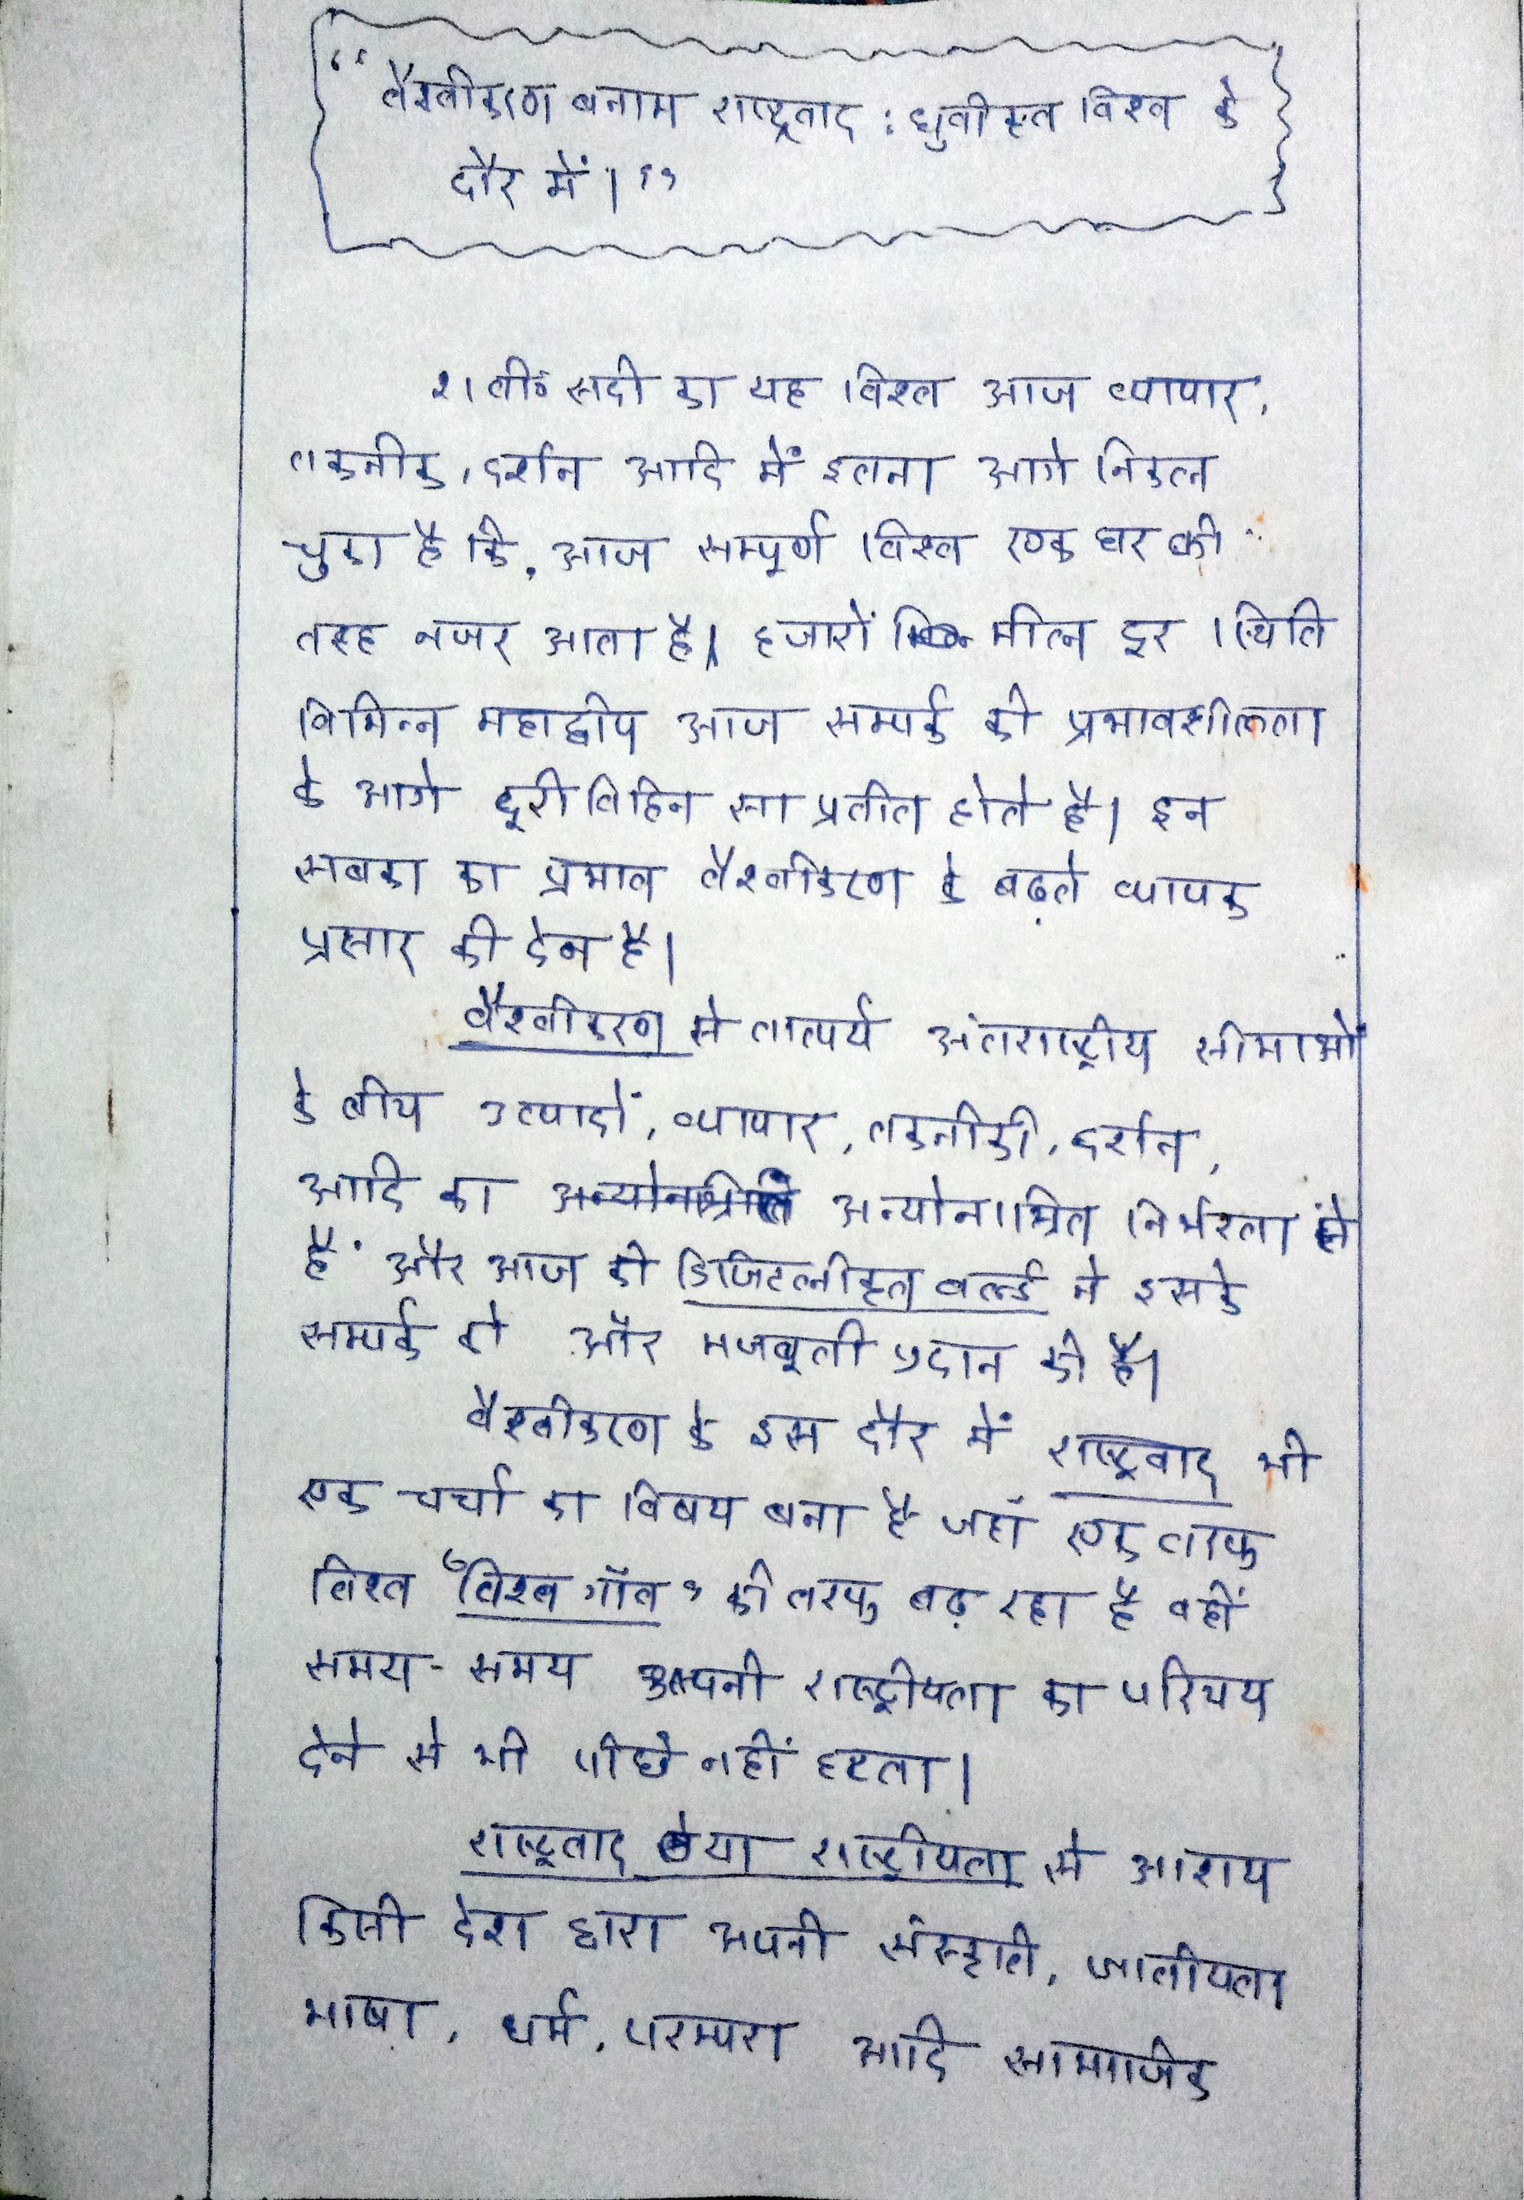 “वैश्वीकरण बनाम राष्ट्रवाद : ध्रुवीकृत विश्व के
दौर में।”
21वीं सदी का यह विश्व आज व्यापार,
तकनीक, दर्शन आदि में इतना आगे निकल
चुका है कि, आज सम्पूर्ण विश्व एक घर की
तरह नजर आता है। हजारों मील दूर स्थिति
विभिन्न महाद्वीप आज सम्पर्क की प्रभावशीलता
के आगे दूरी विहिन सा प्रतीत होते है। इन
सबका का प्रभाव वैश्वीकरण के बढ़ते व्यापक
प्रसार की देन है।
वैश्वीकरण से तात्पर्य अंतराष्ट्रीय सीमाओं
के बीच उत्पादों, व्यापार, तकनीकी, दर्शन,
आदि का अन्योनाश्रित निर्भरता से
है और आज की डिजिटलीकृत वर्ल्ड ने इसके
सम्पर्क को और मजबूती प्रदान की है।
वैश्वीकरण के इस दौर में राष्ट्रवाद भी
एक चर्चा का विषय बना है जहाँ एक तरफ
विश्व “विश्व गाँव” की तरफ बढ़ रहा है वहीं
समय - समय अपनी राष्ट्रीयता का परिचय
देने से भी पीछे नहीं हटता।
राष्ट्रवाद या राष्ट्रीयता से आशय
किसी देश द्वारा अपनी संस्कृति, जातीयता
भाषा, धर्म, परम्परा आदि सामाजिक